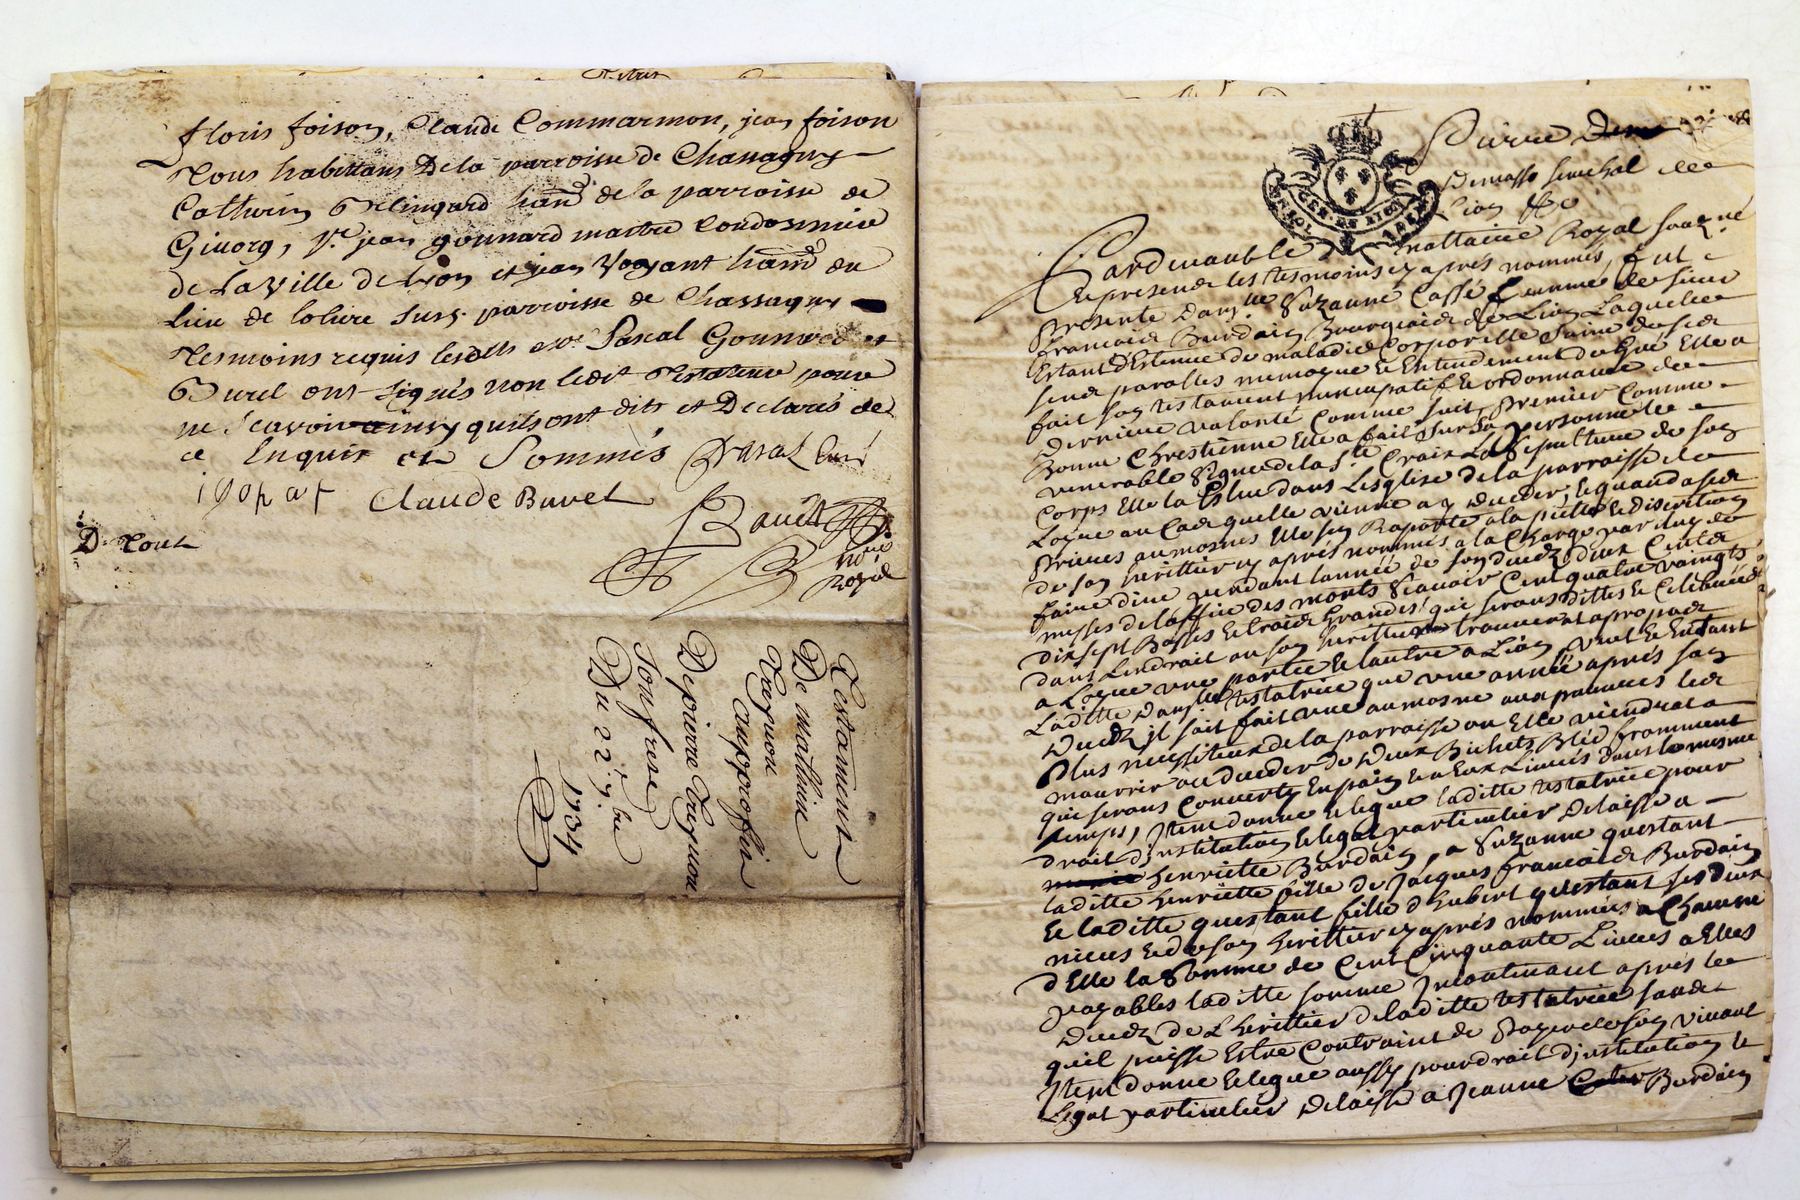 floris foison, Claude Commarmon, jean foison
Tous habittans De la parroisse de Chassagny
Catherin hand de la parroisse de
Givorg, Sr. jean gounard maitre Cordonnier
de La Ville de Lyon et jean Voyant hand du
lieu de susd. parroisse de Chassagny
tesmoins requis lesdits Pascal Gounard et
Burel ont signés non ledit testateur pour
ne scavoir quils ont dits et Declarés de
ce Enquis et Sommés
Claude Buret
noire
Royal
D. Tout
Testament
De mathieu
Au proffit
De pierre
Son frere
Du 22e. 7bre
1734
Pierre
senechal de
Lion &c
Pardevant le nottaire Royal sousné
Et presence les tesmoins cy apres nommés, fut
Presente damlle Suzanne Cassé femme de sieur
francois Burdain Bourgeois de Lion Laquelle
Estant Destenue de maladie Corporelle Saine de ses
sens parolles memoire et Entendement de gré Elle a
fait son testament nuncupatif et ordonnance de
Derniere volonté Comme suit, Premier Comme
Bonne Chrestienne Elle a fait sur sa personne le
venerable Signe de la Ste Croix La Sepulture de son
Corps Elle la Eslue dans Lesglise de la parroisse de
Loyre au Cas quelle vienne a y deceder, et quand a ses
Prieres aumosnes Elle sen Raporte a la pieté et discretion
de son heritier cy apres nommés a la Charge par luy de
faire dire pendant lannée de son deces deux Cents
messes de loffice des morts Scavoir Cent quatre vaingts
dix sept Basses et trois Grandes qui seront dittes et Celebrées
dans Lendroit ou son heritier trouvera a propos
a Loyre une partie et lautre a Lion, Veut et Entant
Laditte damlle testatrice que une année après son
Deces il soit fait une aumosne aux pauvres les
Plus necessiteux de la parroisse ou Elle viendrat a
mourrir ou deceder de Deux Bichets Bled fromment
qui seront Convertis En pain et a Eux Livrés dans le mesme
temps, Item donne et legue laditte testatrice pour
droit dinstitution et legat particulier delaisse a
henriette Burdain, a Suzanne questant
laditte henriette fille de Jacques francois Burdain
Et laditte questant fille d hubert questant ses deux
nieces et de son heritier cy après nommés a Chacune
d Elle la Somme de Cent Cinquante Livres a Elles
payables laditte somme Incontinant après le
Deces de L heritier de laditte testatrice sans
quil puisse Estre Contraint de payer de son vivant
Item donne et legue aussy pour droit dinstitution et
Legat particulier delaisse a Jeanne Burdain